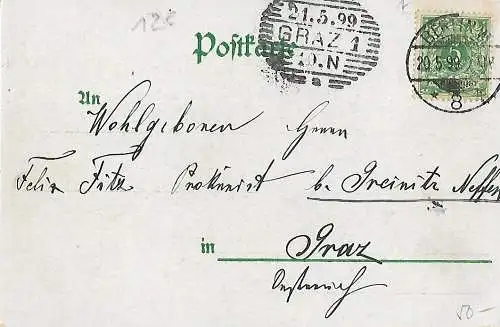 12€
21.5.99
GRAZ 1
10.N
Postkarte
BERLIN
20.5.99
8
An
Wohlgeboren Herrn
Felix Fitz Prokurist b. Greinitz Neffen
in Graz
Oesterreich
50-